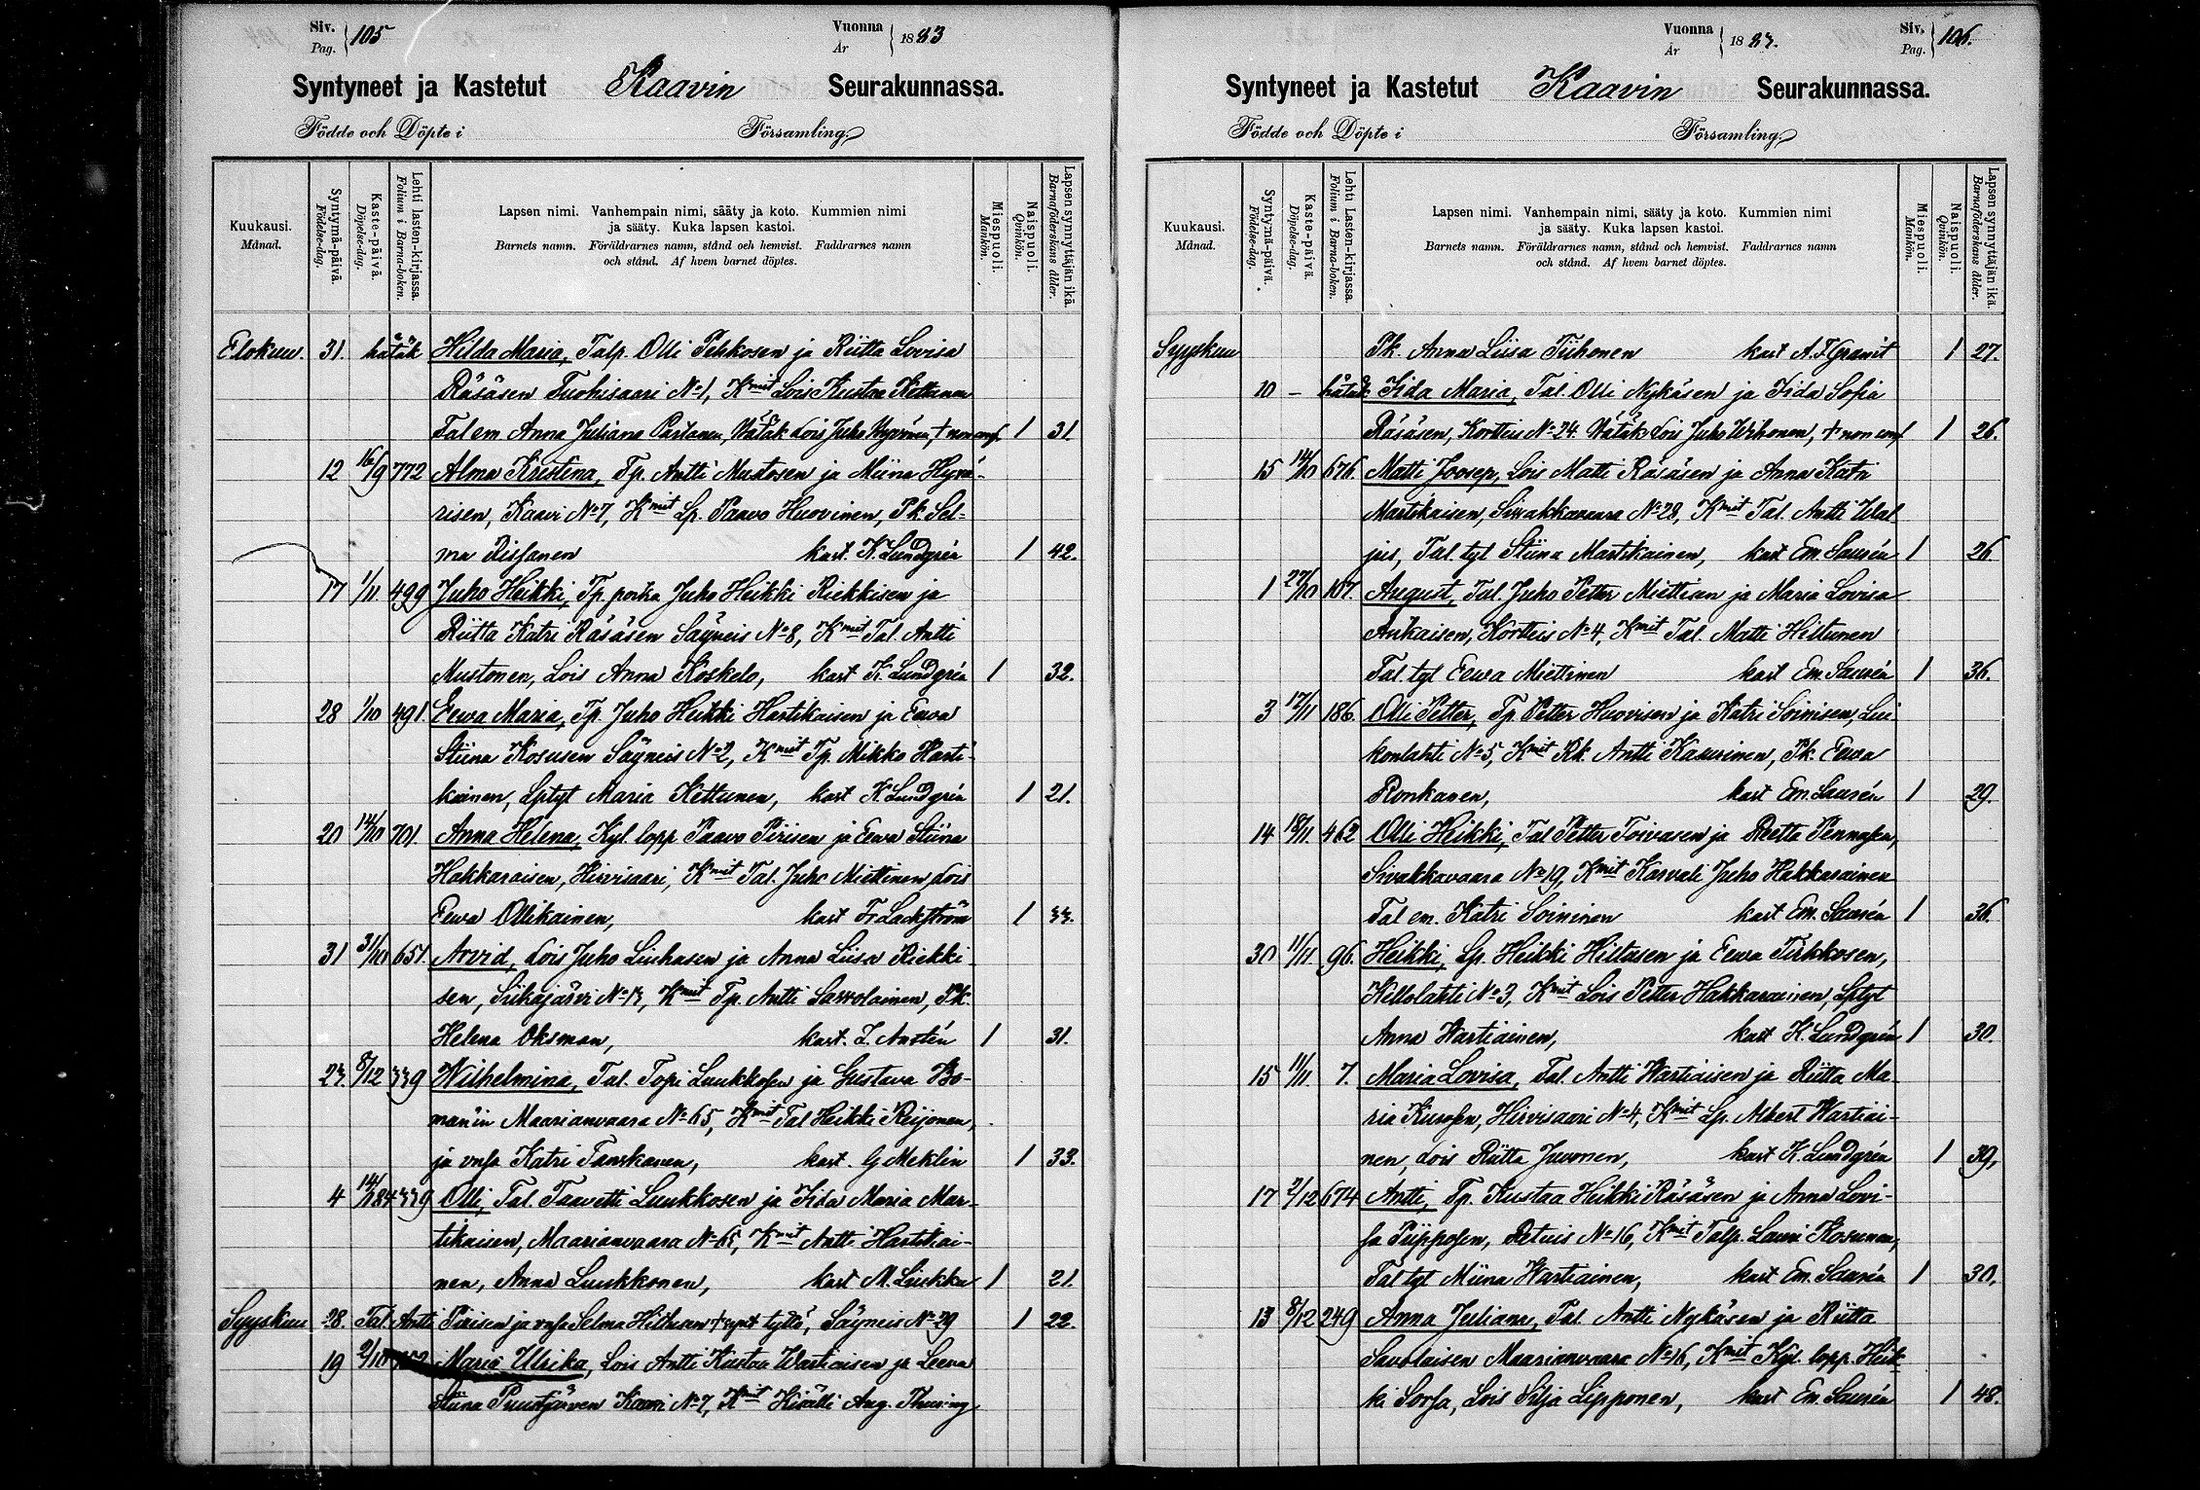 Siv. Pag. 105
Vuonna År 1883
Syntyneet ja Kastetut Kaavin Seurakunnassa.
Födde och Döpte i Församling.
Kuukausi. Månad.
Syntymä-päivä. Födelse-dag.
Kaste-päivä. Döpelse-dag.
Lehti lasten-kirjassa. Folium i Barna-boken.
Lapsen nimi. Vanhempain nimi, sääty ja koto. Kummien nimi
ja sääty. Kuka lapsen kastoi.
Barnets namn. Föräldrarnes namn, stånd och hemvist. Faddrarnes namn
och stånd. Af hvem barnet döptes.
Miespuoli. Mankön.
Naispuoli. Qvinkön.
Lapsen synnyttäjän ikä. Barnaföderskans ålder.
Elokuu. 31. hätäk Hilda Maria, Talp. Olli Pekkosen ja Riitta Lovisa
Räsäsen Tuohisaari No 1, Kmit Lois Kustaa Kettunen
Tal em Anna Juliana Partanen, Hätäk Lois Juho 1 31.
12 16/9 772 Alma Kristina, Tp. Antti Mustosen ja Miina Hyvä-
risen, Kaavi No 7, Kmit Lp. Paavo Huovinen, Pk. Sel-
ma Rissanen kast. K. Lundgrén 1 42.
17 1/11 499 Juho Heikki, Tp. poika Juho Heikki Riekkisen ja
Riitta Katri Räsäsen Säyneis No 8, Kmit Tal. Antti
Mustonen, Lois Anna Koskelo, kast K. Lundgrén 1 32.
28 1/10 491. Eewa Maria, Tp. Juho Heikki Hartikaisen ja Eewa
Stiina Kosusen Säyneis No 2, Kmit Tp. Mikko Harti-
kainen, Lptyt Maria Kettunen, kast K Lundgrén 1 21.
20 14/10 701. Anna Helena, Kyl. lopp Paavo Pirisen ja Eewa Stiina
Hakkaraisen, Hirvisaari, Kmit Tal. Juho Miettinen Lois
Eewa Ollikainen, kast Fr. Lackström 1 33.
31 31/10 651. Arvid, Lois Juho Liuhasen ja Anna Liisa Riekki-
sen, Siikajärvi No 13, Kmit Tp. Antti Savolainen, Pk.
Helena Oksman, kast. 1 31.
23. 8/12 339 Wilhelmina, Tal. Topi Luukkosen ja Gustava Bo-
man'in Maarianvaara No 65, Kmit Tal Heikki Reijonen,
ja vmsa Katri Tanskanen, kast. G Meklin 1 33.
4 14/1 84 339 Olli, Tal. Taavetti Luukkosen ja Iida Maria Mar-
tikaisen, Maarianvaara No 65, Kmit Antti Hartikai-
nen, Anna Luukkonen, kast M. Liukku 1 21.
Syyskuu 28. Tal. Antti Pirisen ja vmsa Selma Hiltusen † synt tyttö, Säyneis No 29 1 22.
19 2/10 Maria Ulrika, Lois Antti Kustaa Wartiaisen ja Leena
Stiina Puustjärven Kaavi No 7, Kmit Kisälli Aug. Thuring
Vuonna År 1883.
Siv. Pag. 106.
Syntyneet ja Kastetut Kaavin Seurakunnassa.
Födde och Döpte i Församling.
Kuukausi. Månad.
Syntymä-päivä. Födelse-dag.
Kaste-päivä. Döpelse-dag.
Lehti Lasten-kirjassa. Folium i Barna-boken.
Lapsen nimi. Vanhempain nimi, sääty ja koto. Kummien nimi
ja sääty. Kuka lapsen kastoi.
Barnets namn. Föräldrarnes namn, stånd och hemvist. Faddrarnes namn
och stånd. Af hvem barnet döptes.
Miespuoli. Mankön.
Naispuoli. Qvinkön.
Lapsen synnyttäjän ikä. Barnaföderskans ålder.
Syyskuu Pk. Anna Liisa Tiihonen kast A. F. Granit 1 27.
10 – hätäk Iida Maria, Tal. Olli Nykäsen ja Iida Sofia
Räsäsen, Kortteis No 24. Hätäk Lois Juho Urhonen, † non conf 1 26.
15 14/10 676. Matti Joosep, Lois Matti Räsäsen ja Anna Katri
Martikaisen, Sivakkavaara No 28, Kmit Tal. Antti Wal-
jus, Tal. tyt Stiina Martikainen, kast Em. Saurén 1 26
1 27/10 107. August, Tal. Juho Petter Miettisen ja Maria Lovisa
Kortteis No 4, Kmit Tal. Matti Hiltunen
Tal. tyt Eewa Miettinen kast Em. Saurén 1 36.
3 12/11 186. Olli Petter, Tp Petter Huovisen ja Katri Soinisen, Lui-
konlahti No 5, Kmit Rk. Antti Kaurinen, Pk. Eewa
Ronkanen, kast Em. Saurén 1 29.
14 18/11. 462 Olli Heikki, Tal Petter Toivasen ja Reetta Pennasen,
Sivakkavaara No 19, Kmit Kasvati Juho Hakkarainen
Tal em. Katri Soininen kast Em. Saurén 1 36
30 11/11 96. Heikki, Lp. Heikki Hiltusen ja Eewa Tirkkosen,
Kellolahti No 3, Kmit Lois Petter Hakkarainen, Lptyt
Anna Wartiainen, kast K. Lundgrén 1 30.
15 11/11 7. Maria Lovisa, Tal. Antti Wartiaisen ja Riitta Ma-
ria Kurosen, Hirvisaari No 4, Kmit Lp. Albert Wartiai-
nen, Lois Riitta Juvonen, kast K. Lundgrén 1 39,
17 2/12 674 Antti, Tp. Kustaa Heikki Räsäsen ja Anna Lovi-
sa Piipposen, Retuis No 16, Kmit Talp. Lauri Kosunen,
Tal tyt Miina Wartiainen, kast Em. Saurén 1 30.
13 8/12 249 Anna Juliana, Tal. Antti Nykäsen ja Riitta
Savolaisen Maarianvaara No 16, Kmit Kyl. lopp. Heik-
ki Sorsa, Lois Silja Lipponen, kast Em. Saurén 1 48.